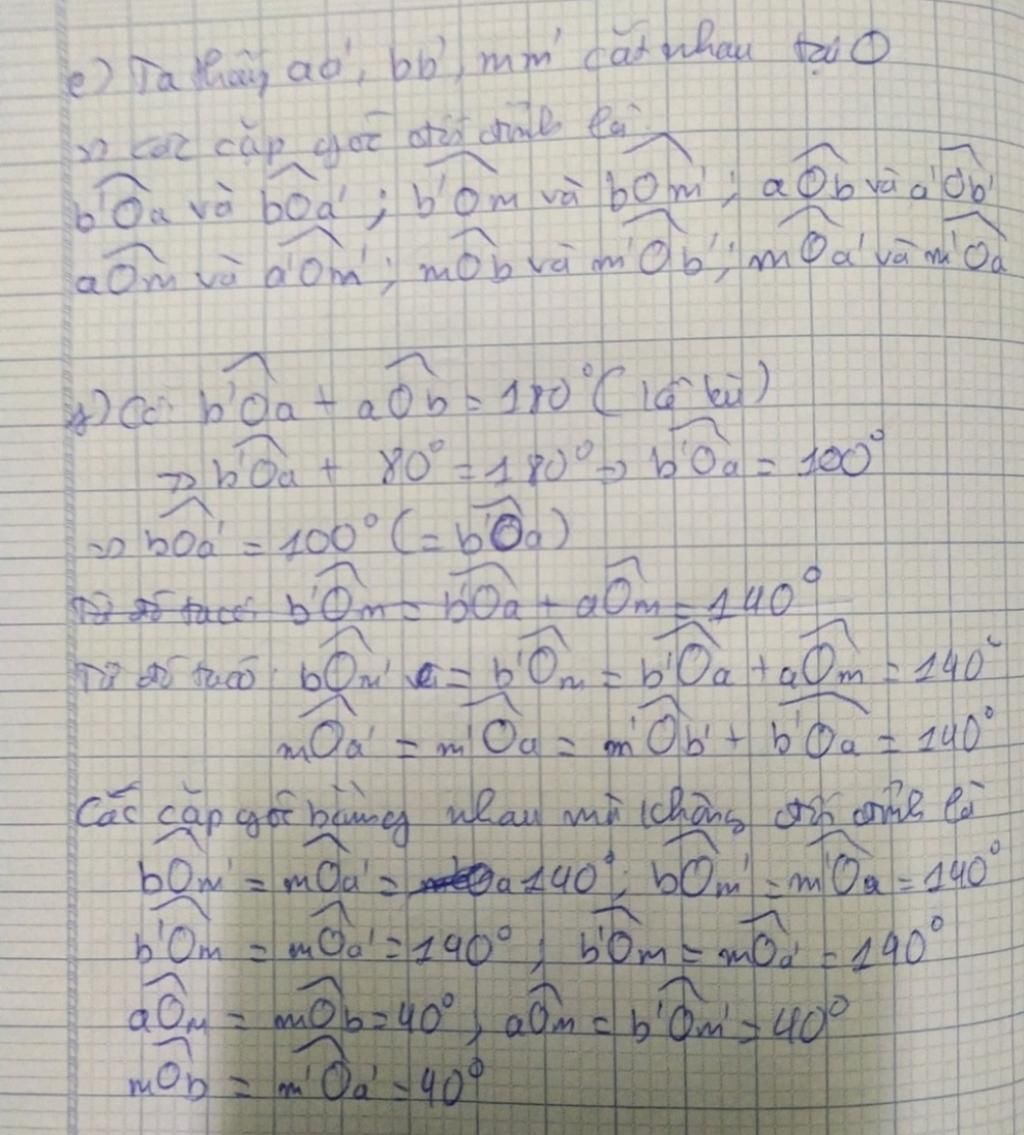 e) Ta thấy aa', bb', mm' cắt nhau tại O
=> các cặp góc đối đỉnh là
b'Oa và bOa' ; b'Om và bOm' ; aOb và a'Ob'
aOm và a'Om' ; mOb và m'Ob' ; mOa' và m'Oa
Có b'Oa + aOb = 180° ( kề bù )
=> b'Oa + 80° = 180° => b'Oa = 100°
=> bOa' = 100° (= b'Oa)
Từ đó ta có b'Om = b'Oa + aOm = 140°
Từ đó ta có: bOm' = b'Om = b'Oa + aOm = 140°
mOa' = m'Oa = m'Ob' + b'Oa = 140°
Các cặp góc bằng nhau mà không đối đỉnh là
bOm' = mOa' = 140° ; bOm' = m'Oa = 140°
b'Om = mOa' = 140° ; b'Om = mOa' = 140°
aOm = mOb = 40° ; aOm = b'Om' = 40°
mOb = m'Oa' = 40°